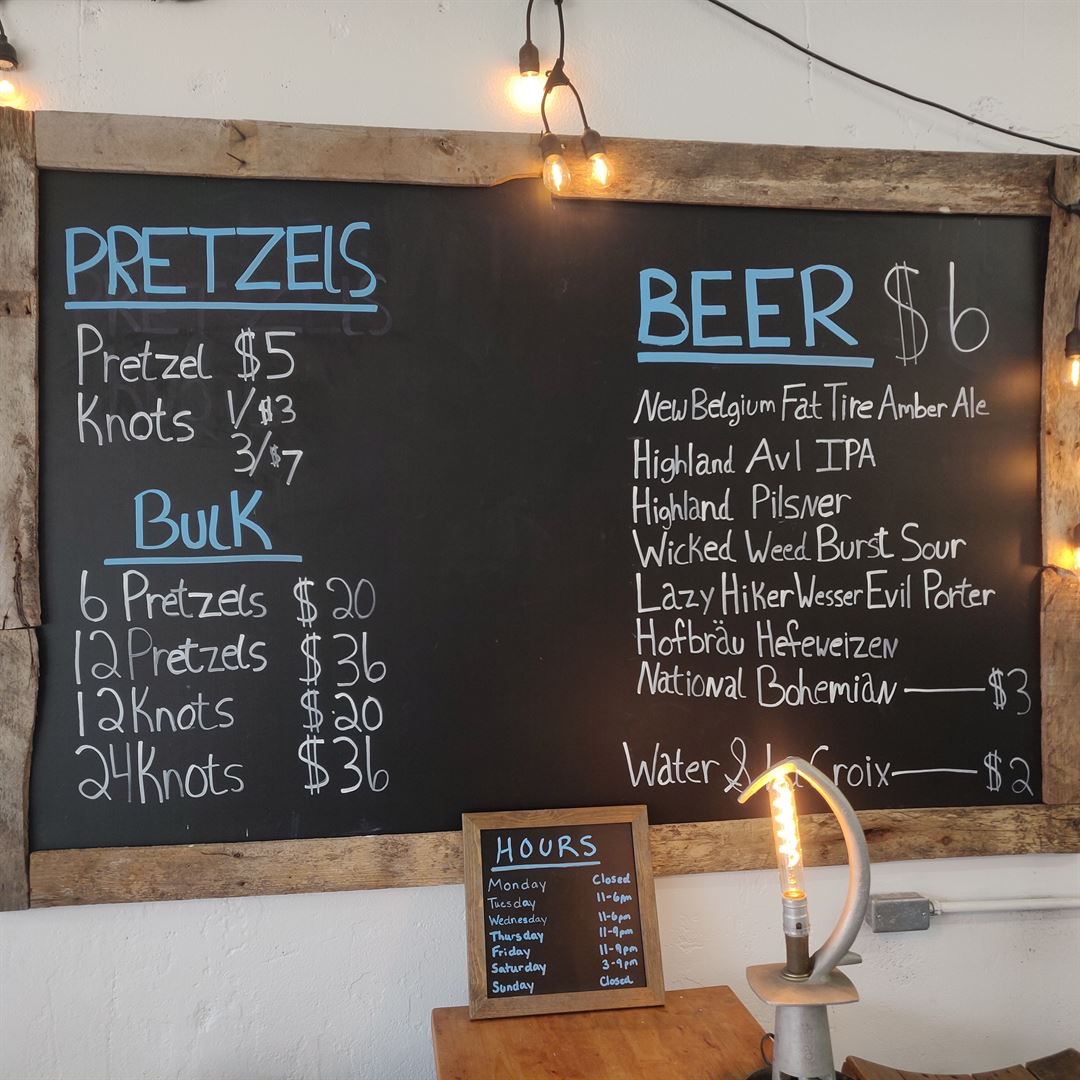 PRETZELS
Pretzel $5
Knots 1/$3
3/$7
BULK
6 Pretzels $20
12 Pretzels $36
12 Knots $20
24 Knots $36
BEER $6
New Belgium Fat Tire Amber Ale
Highland Avl IPA
Highland Pilsner
Wicked Weed Burst Sour
Lazy Hiker Wesser Evil Porter
Hofbräu Hefeweizen
National Bohemian — $3
Water & La Croix — $2
HOURS
Monday Closed
Tuesday 11-6pm
Wednesday 11-6pm
Thursday 11-9pm
Friday 11-9pm
Saturday 3-9pm
Sunday Closed